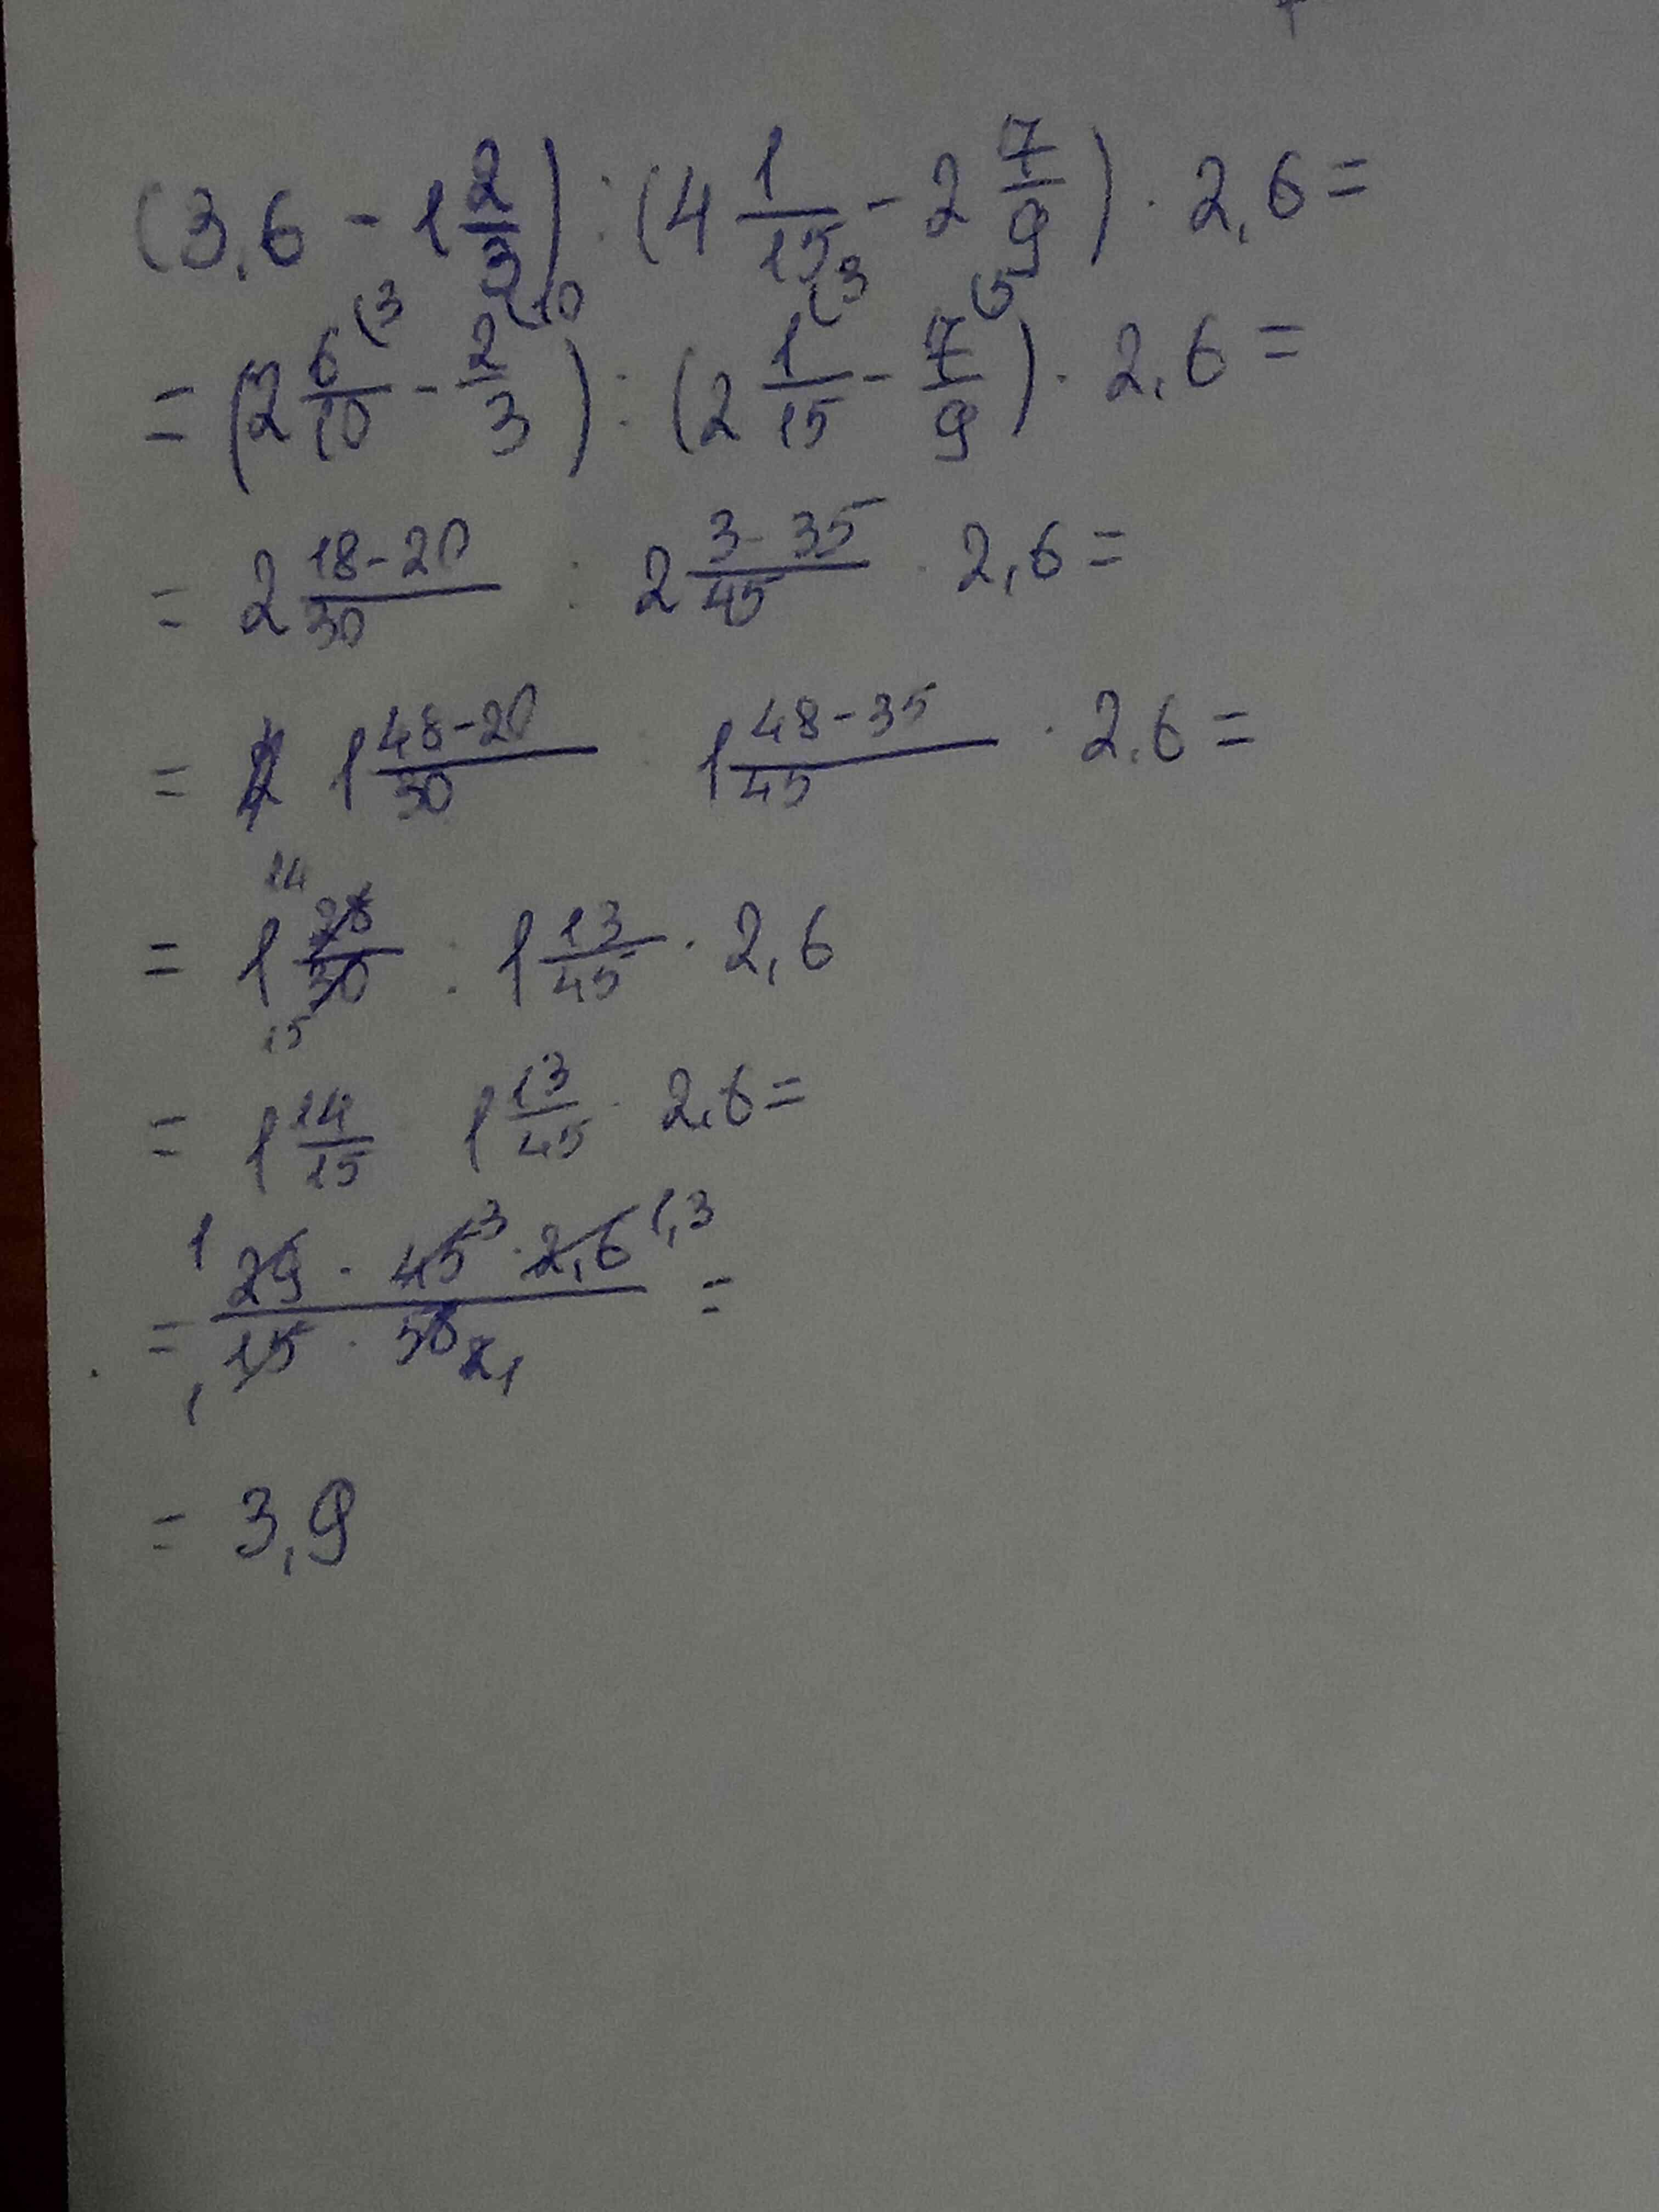 (3,6 - 1 2/3) : (4 1/15 - 2 7/9) · 2,6 =
= (2 6/10 (3 - 2/3 (10) : (2 1/15 (3 - 7/9 (5) · 2,6 =
= 2 18-20/30 : 2 3-35/45 · 2,6 =
= 1 48-20/30 1 48-35/45 · 2,6 =
= 1 28/30 14 15 : 1 13/45 · 2,6
= 1 14/15 1 13/45 · 2,6 =
= 1 29 · 45 3 · 2,6 1,3 / 1 15 · 58 2 1 =
= 3,9